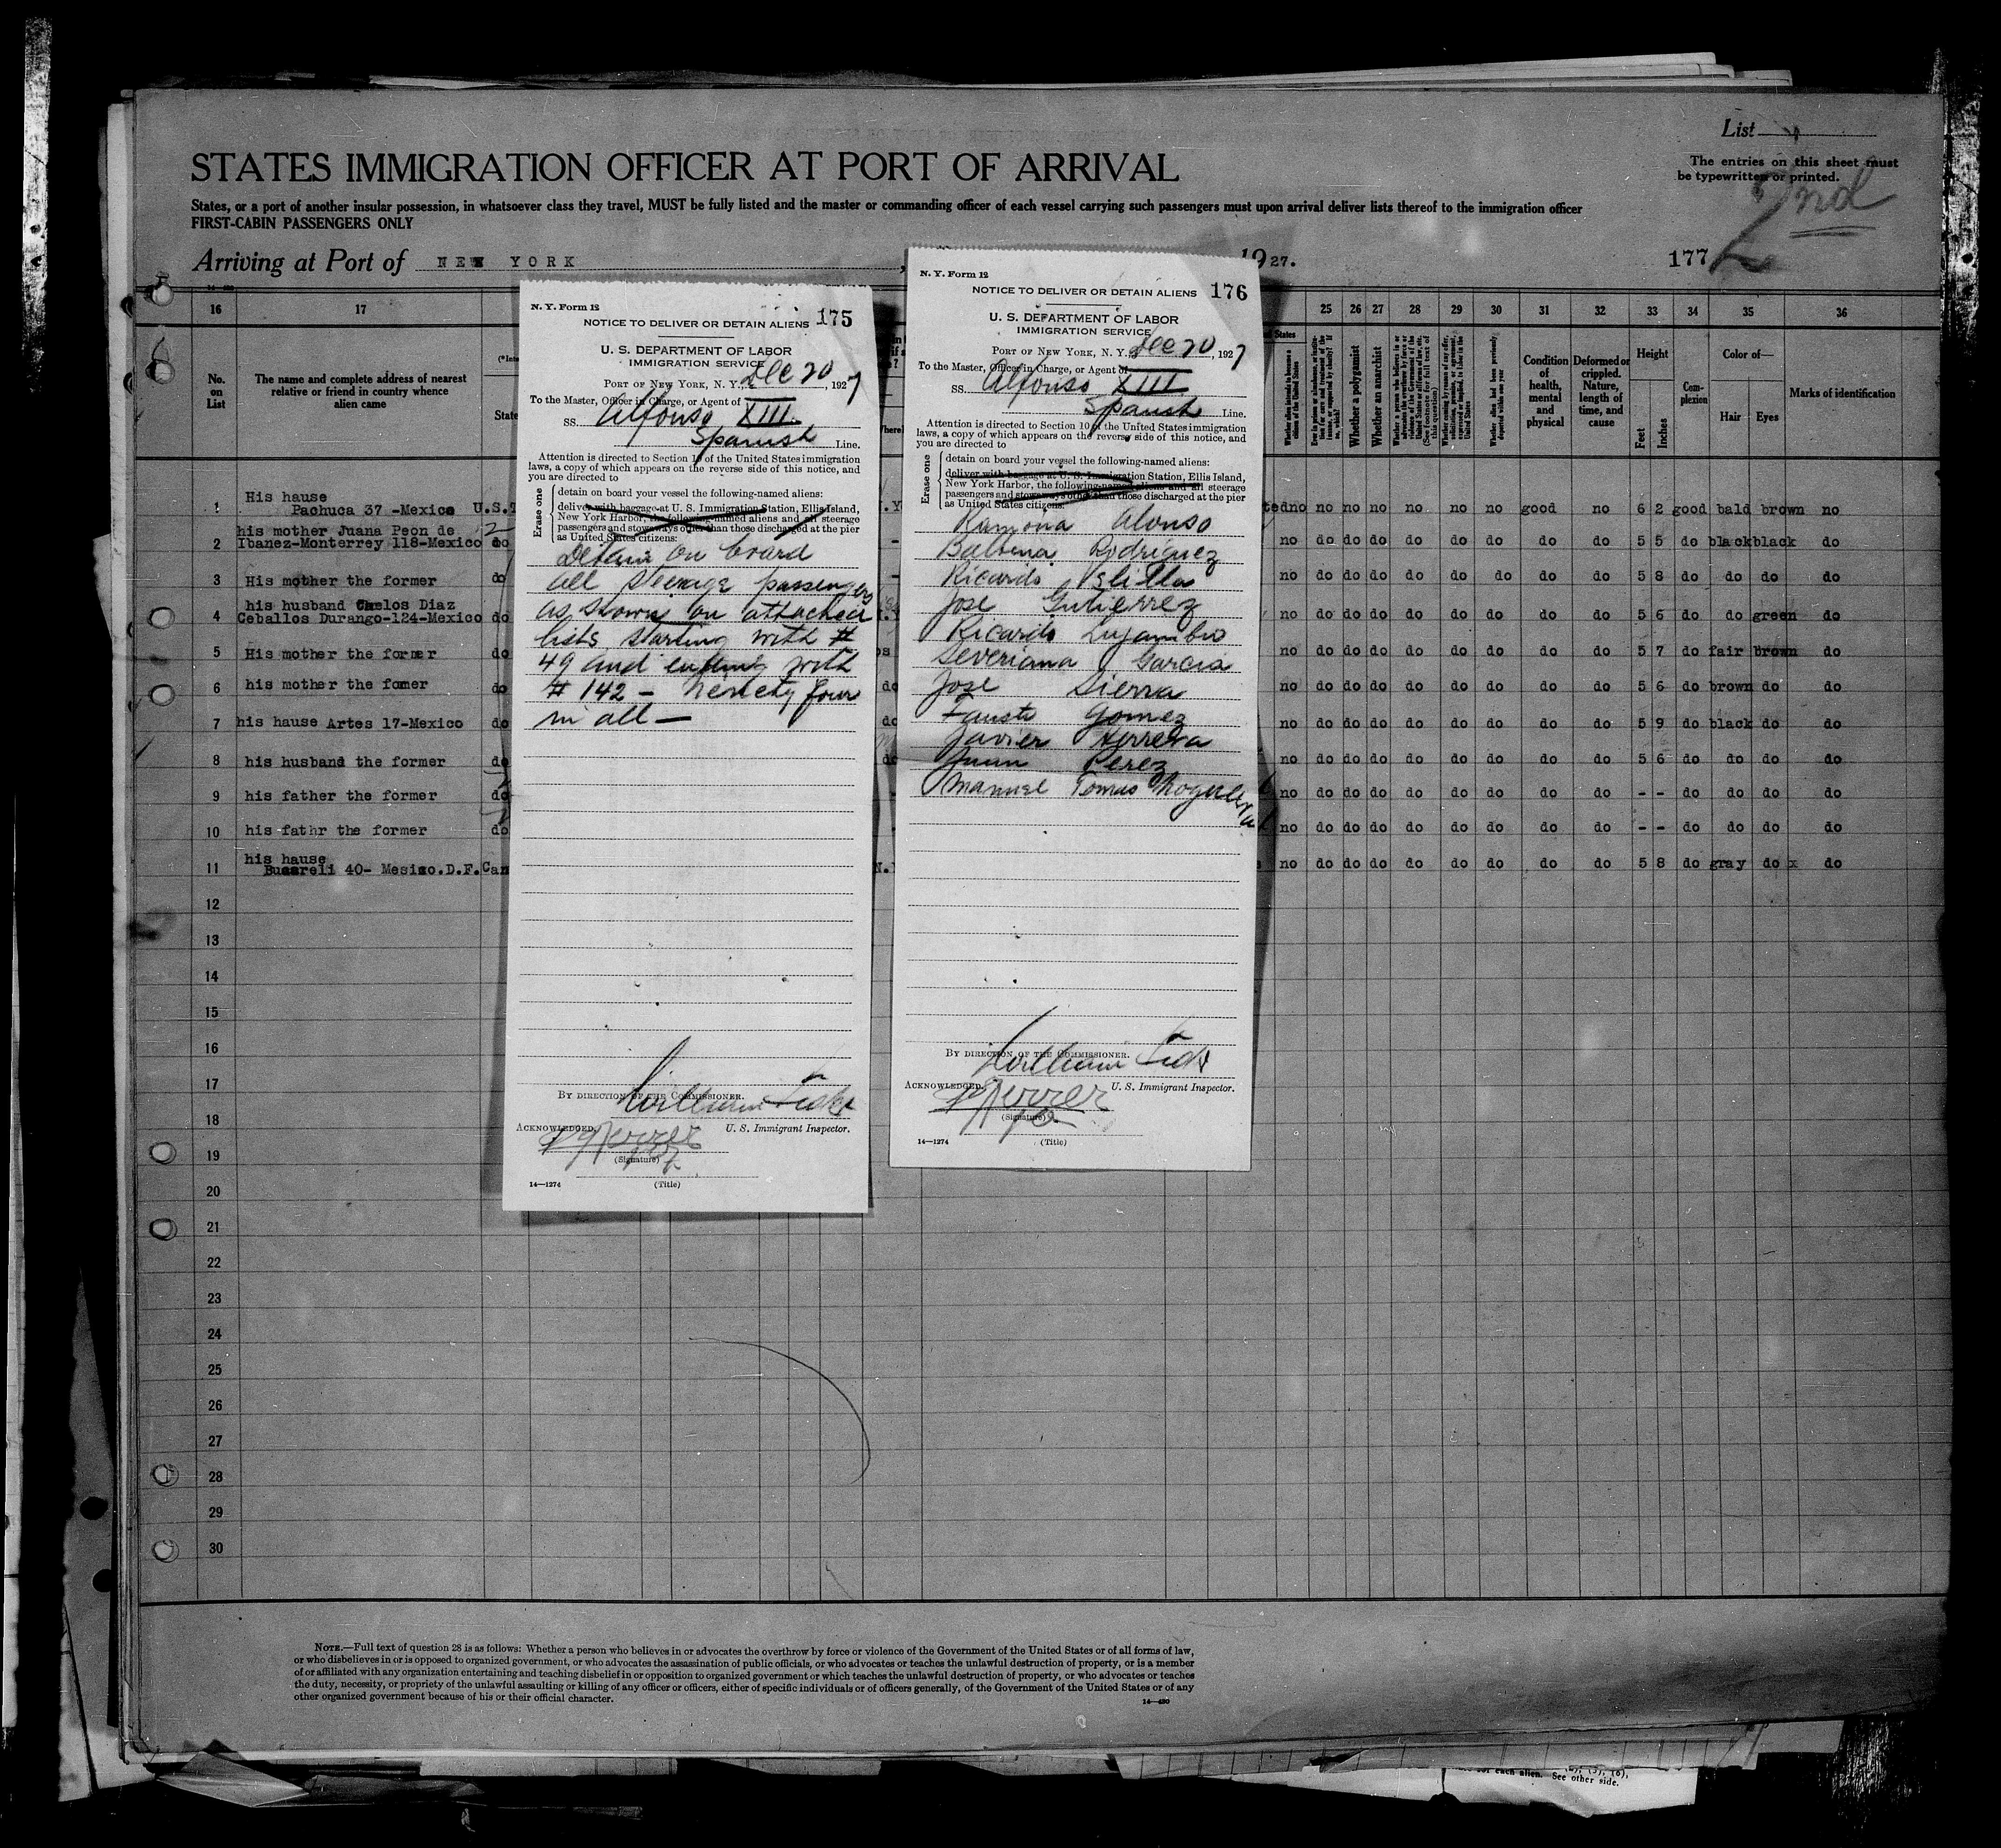 List
The entries on this sheet must
be typewritten or printed.
2nd
STATES IMMIGRATION OFFICER AT PORT OF ARRIVAL
States, or a port of another insular possession, in whatsoever class they travel, MUST be fully listed and the master or commanding officer of each vessel carrying such passengers must upon arrival deliver lists thereof to the immigration officer
FIRST-CABIN PASSENGERS ONLY
Arriving at Port of NEW YORK , 1927. 177
16 17
No. on List
The name and complete address of nearest relative or friend in country whence alien came
State
25 26 27 28 29 30 31 32 33 34 35 36
Whether a polygamist
Whether an anarchist
Condition of health, mental and physical
Deformed or crippled. Nature, length of time, and cause
Height
Feet Inches
Complexion
Color of—
Hair Eyes
Marks of identification
1 His hause
Pachuca 37 -Mexico U.S. no no no no no no no good no 6 2 good bald brown no
his mother Juana Peon de
2 Ibanez-Monterrey 118-Mexico do no do do do do do do do do 5 5 do black black do
3 His mother the former do no do do do do do do do do 5 8 do do do do
his husband Carlos Diaz
4 Ceballos Durango-124-Mexico do no do do do do do do do do 5 6 do do green do
5 His mother the former do no do do do do do do do do 5 7 do fair brown do
6 his mother the fomer do no do do do do do do do do 5 6 do brown do do
7 his hause Artes 17-Mexico do no do do do do do do do do 5 9 do black do do
8 his husband the former do no do do do do do do do do 5 6 do do do do
9 his father the former do no do do do do do do do do - - do do do do
10 his fathr the former do no do do do do do do do do - - do do do do
his hause
11 Bucareli 40- Mesico.D.F. Can no do do do do do do do do 5 8 do gray do x do
12
13
14
15
16
17
18
19
20
21
22
23
24
25
26
27
28
29
30
N. Y. Form 12
NOTICE TO DELIVER OR DETAIN ALIENS 175
U. S. DEPARTMENT OF LABOR
IMMIGRATION SERVICE
PORT OF NEW YORK, N. Y., Dec 20, 1927
To the Master, Officer in Charge, or Agent of
SS. Alfonso XIII
Spanish Line.
Attention is directed to Section 10 of the United States immigration
laws, a copy of which appears on the reverse side of this notice, and
you are directed to
Erase one
detain on board your vessel the following-named aliens:
deliver with baggage at U. S. Immigration Station, Ellis Island,
New York Harbor, the following-named aliens and all steerage
passengers and stowaways other than those discharged at the pier
as United States citizens:
Detain on board
all steerage passengers
as shown on attached
lists starting with #
49 and ending with
# 142 - Ninety four
in all —
BY DIRECTION OF THE COMMISSIONER.
William
U. S. Immigrant Inspector.
ACKNOWLEDGED,
(Signature)
(Title)
14—1274
N. Y. Form 12
NOTICE TO DELIVER OR DETAIN ALIENS 176
U. S. DEPARTMENT OF LABOR
IMMIGRATION SERVICE
PORT OF NEW YORK, N. Y. Dec 20, 1927
To the Master, Officer in Charge, or Agent of
SS. Alfonso XIII
Spanish Line.
Attention is directed to Section 10 of the United States immigration
laws, a copy of which appears on the reverse side of this notice, and
you are directed to
Erase one
detain on board your vessel the following-named aliens:
deliver with baggage at U. S. Immigration Station, Ellis Island,
New York Harbor, the following-named aliens and all steerage
passengers and stowaways other than those discharged at the pier
as United States citizens:
Ramona Alonso
Balbina Rodriguez
Ricardo
Jose Gutierrez
Ricardo Lujambio
Severiana Garcia
Jose Sierra
Fausto Gomez
Javier Herrera
Juan Perez
Manuel Tomas Noguera
BY DIRECTION OF THE COMMISSIONER.
William
U. S. Immigrant Inspector.
ACKNOWLEDGED,
(Signature)
(Title)
14—1274
NOTE.—Full text of question 28 is as follows: Whether a person who believes in or advocates the overthrow by force or violence of the Government of the United States or of all forms of law,
or who disbelieves in or is opposed to organized government, or who advocates the assassination of public officials, or who advocates or teaches the unlawful destruction of property, or is a member
of or affiliated with any organization entertaining and teaching disbelief in or opposition to organized government or which teaches the unlawful destruction of property, or who advocates or teaches
the duty, necessity, or propriety of the unlawful assaulting or killing of any officer or officers, either of specific individuals or of officers generally, of the Government of the United States or of any
other organized government because of his or their official character.
14—430
for each alien. See other side.